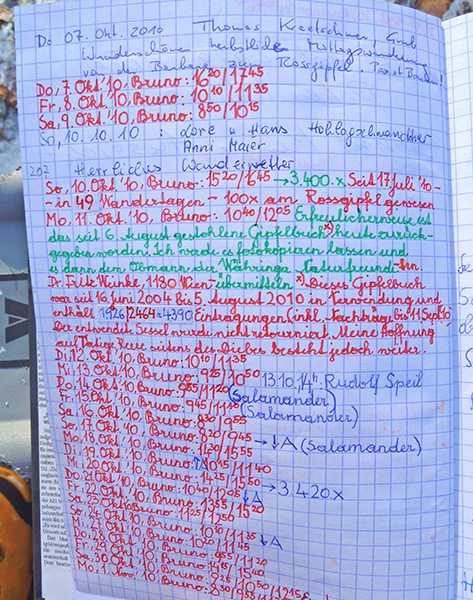 Do 07. Okt. 2010 Thomas
Wunderschöne herbstliche Mittagswanderung
von der zum Rossgipfel.
Do, 7. Okt. '10, Bruno: 16²⁰/17⁴⁵
Fr, 8. Okt. '10, Bruno: 10¹⁰/11³⁵
Sa, 9. Okt. '10, Bruno: 8⁵⁰/10¹⁵
So, 10.10.10 : Lore u Hans
Anni Maier
207 Herrliches Wanderwetter
So, 10. Okt. '10, Bruno: 15²⁰/16⁴⁵ → 3.400.x Seit 17. Juli '10 -
- in 49 Wandertagen - 100x am Rossgipfel gewesen
Mo, 11. Okt. '10, Bruno: 10⁴⁰/12⁰⁵ Erfreulicherweise ist
das seit 6. August gestohlene Gipfelbuch x) heute zurück-
gegeben worden. Ich werde es fotokopieren lassen und
es dann dem Obmann der Währinga Naturfreunde Hrn.
Dr. Fritz Winke, 1180 Wien übermitteln. x) Dieses Gipfelbuch
war seit 16. Juni 2004 bis 5. August 2010 in Verwendung und
enthält 1926/2464=4390 Eintragungen (inkl. Nachträge bis 11. Sept. '10)
Der entwendet. Sessel wurde nicht retourniert. Meine Hoffnung
auf tätige Reue seitens des Diebes besteht jedoch weiter.
Di, 12. Okt. '10, Bruno: 10¹⁰/11³⁵
Mi, 13. Okt. '10, Bruno: 9²⁵/10⁵⁰ 13.10. 14h. Rudolf Speil
Do, 14. Okt. '10, Bruno: 9⁵⁵/11²⁰ (Salamander)
Fr, 15. Okt. '10, Bruno: 9⁴⁵/11¹⁰ (Salamander)
Sa, 16. Okt. '10, Bruno: 8³⁰/9⁵⁵
So, 17. Okt. '10, Bruno: 8²⁰/9⁴⁵ → ↓A (Salamander)
Mo, 18. Okt. '10, Bruno: 14³⁰/15⁵⁵
Di, 19. Okt. '10, Bruno: 10¹⁵/11⁴⁰
Mi, 20. Okt. '10, Bruno: 14²⁵/15⁵⁰
Do, 21. Okt. '10, Bruno: 10⁴⁰/12⁰⁵ → 3.420.x
Fr, 22. Okt. '10, Bruno: 13⁵⁵/15²⁰ ↓A
Sa, 23. Okt. '10, Bruno: 11²⁵/12⁵⁰
So, 24. Okt. '10, Bruno:
Mi, 27. Okt. '10, Bruno: 10¹⁰/11³⁵ ↓A
Do, 28. Okt. '10, Bruno: 10²⁰/11⁴⁵
Fr, 29. Okt. '10, Bruno: 9⁵⁵/11²⁰
Sa, 30. Okt. '10, Bruno: 14¹⁵/15⁴⁰
Mo, 1. Nov. '10, Bruno: 9²⁵/10⁵⁰